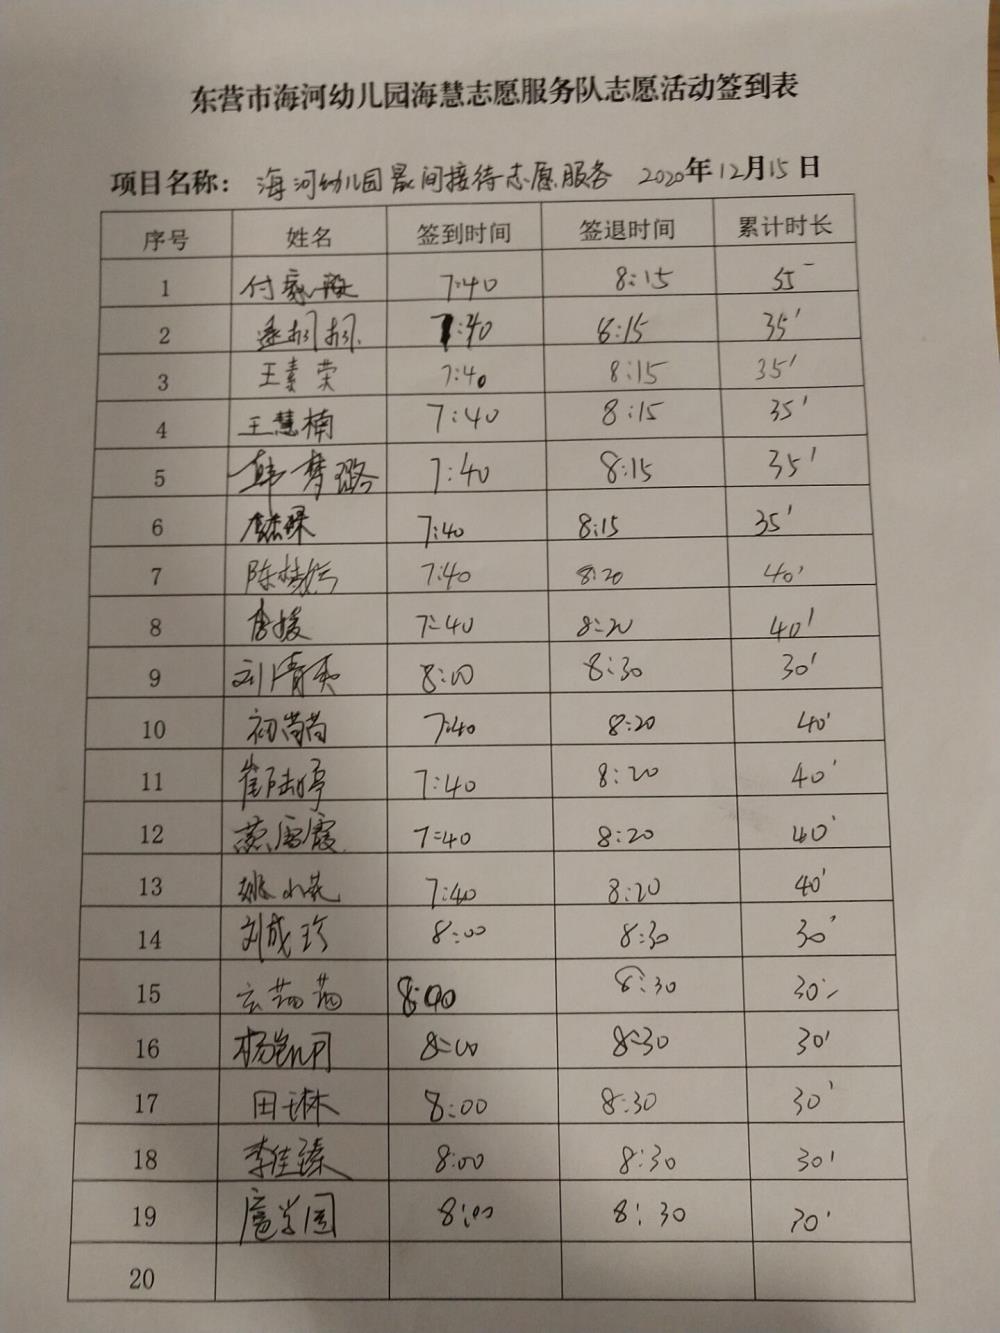 东营市海河幼儿园海慧志愿服务队志愿活动签到表
项目名称： 海河幼儿园晨间接待志愿服务 2020年12月15日
序号 姓名 签到时间 签退时间 累计时长
1 付 7:40 8:15
2 7:40 8:15 35'
3 王素荣 7:40 8:15 35'
4 王慧楠 7:40 8:15 35'
5 韩梦璐 7:40 8:15 35'
6 7:40 8:15 35'
7 陈 7:40 8:20 40'
8 李媛 7:40 8:20 40'
9 刘清 8:00 8:30 30'
10 初茜茜 7:40 8:20 40'
11 崔 婷 7:40 8:20 40'
12 霞 7:40 8:20 40'
13 姚 7:40 8:20 40'
14 刘成珍 8:00 8:30 30'
15 8:00 8:30 30'
16 杨 8:00 8:30 30'
17 田 琳 8:00 8:30 30'
18 李佳臻 8:00 8:30 30'
19 8:00 8:30 30'
20